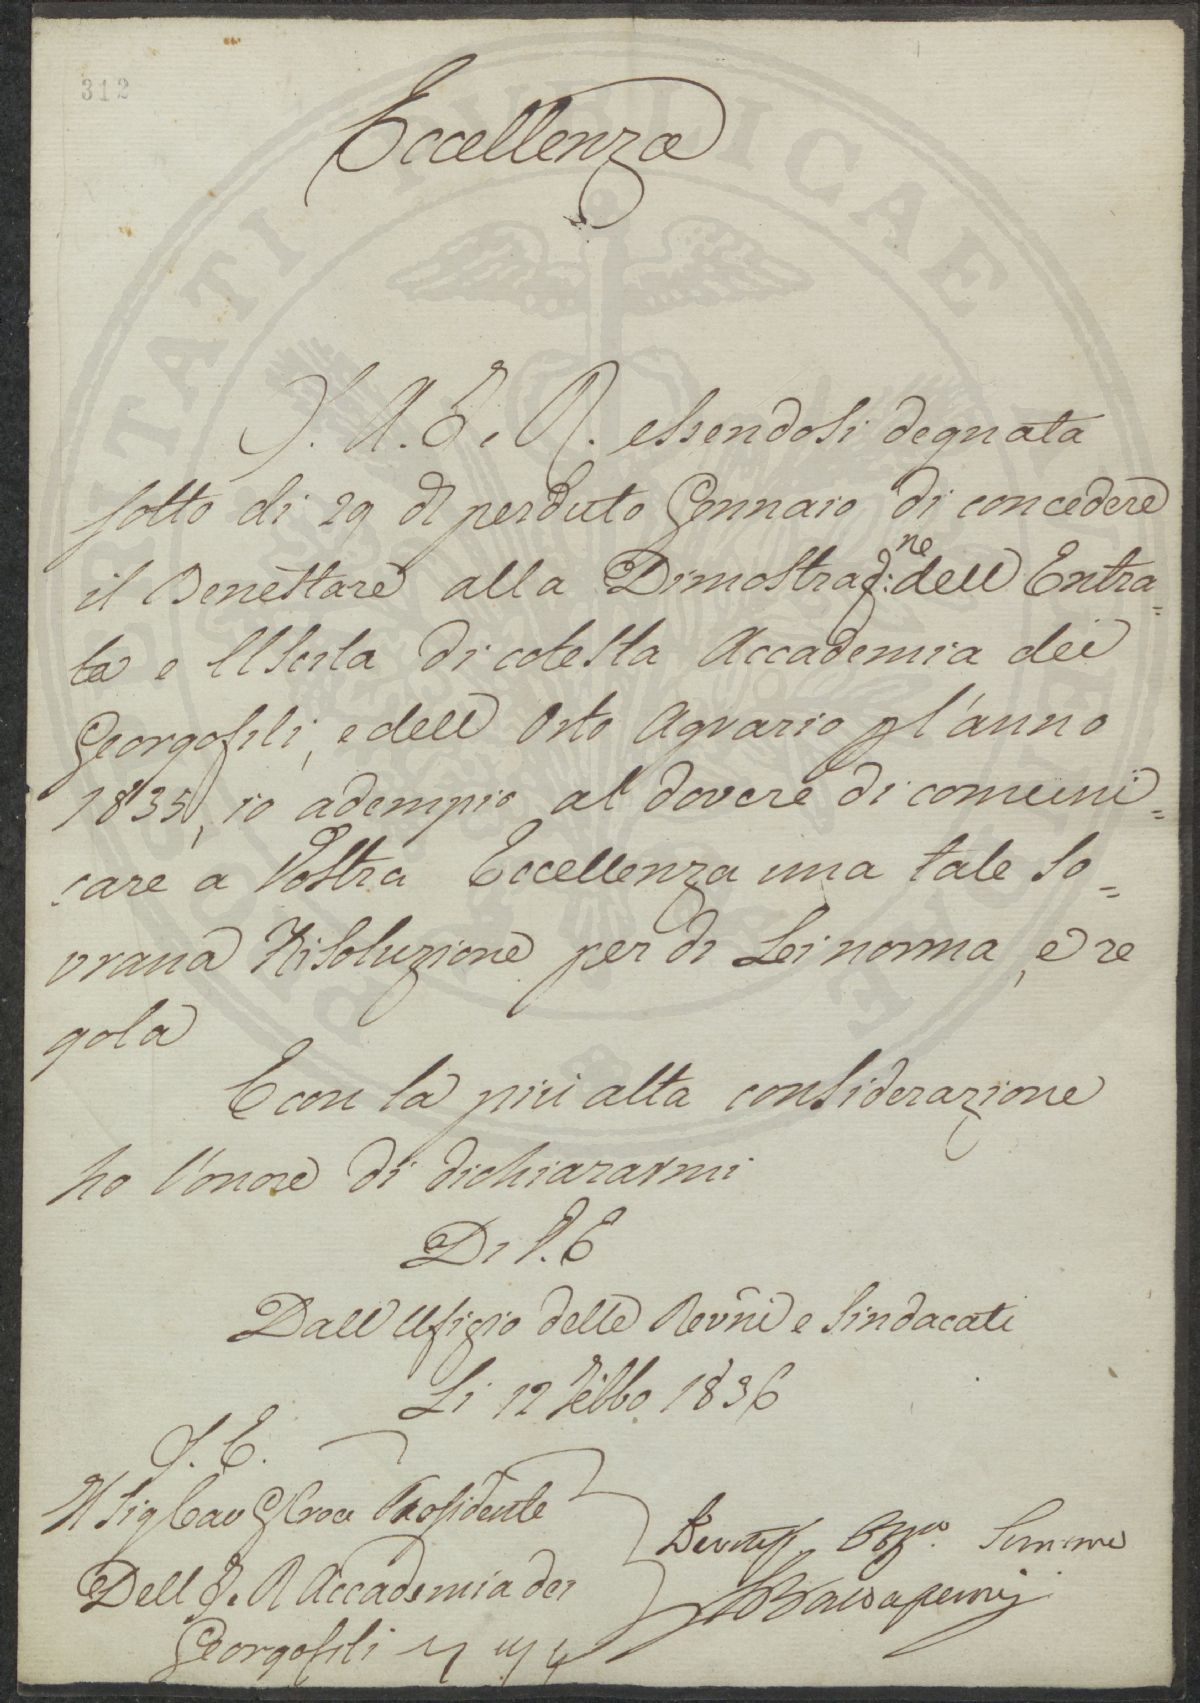 312
Eccellenza
S. A. I. e R. essendosi degnata
sotto di 29 del perduto Gennaio di concedere
il Benestare alla Dimostraz:ne dell Entra=
ta e Uscita di cotesta Accademia dei
Georgofili, e dell Orto Agrario pl'anno
1835, io adempio al dovere di comuni=
care a Vostra Eccellenza una tale So=
vrana Risoluzione per di Lei norma, e re
gola
E con la più alta considerazione
ho l'onore di dichiararmi
Di V. E
Dall Ufizio delle Revni e Sindacati
Li 12 Febbo 1836
S. E.
Il Sig Cav Presidente
Dell I. R Accademia dei
Georgofili